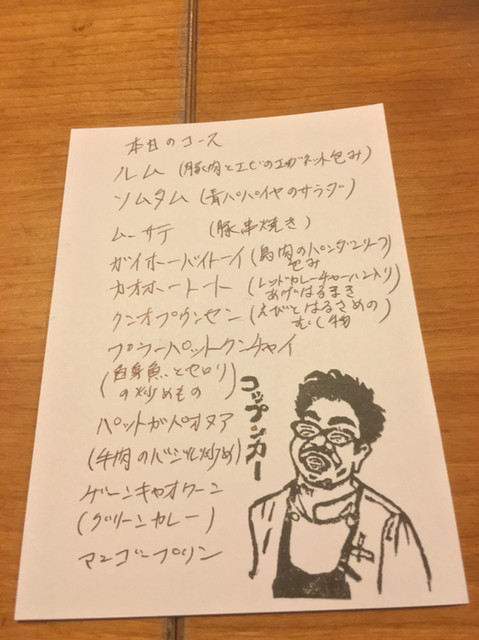 本日のコース
ルム (豚肉とエビのエガネット包み)
ソムタム (青パパイヤのサラダ)
ムーサテ (豚串焼き)
ガイホーバイトーイ (鳥肉のパンダンリーフ
包み)
カオホートート (レッドカレーチャーハン入り
あげはるまき)
クンオプウンセン (えびとはるさめの
むし物)
プラーパットクンチャイ
(白身魚とセロリ
の炒めもの)
パットガパオヌア
(牛肉のバジル炒め)
ゲーンキャオワーン
(グリーンカレー)
マンゴープリン
コップンカー